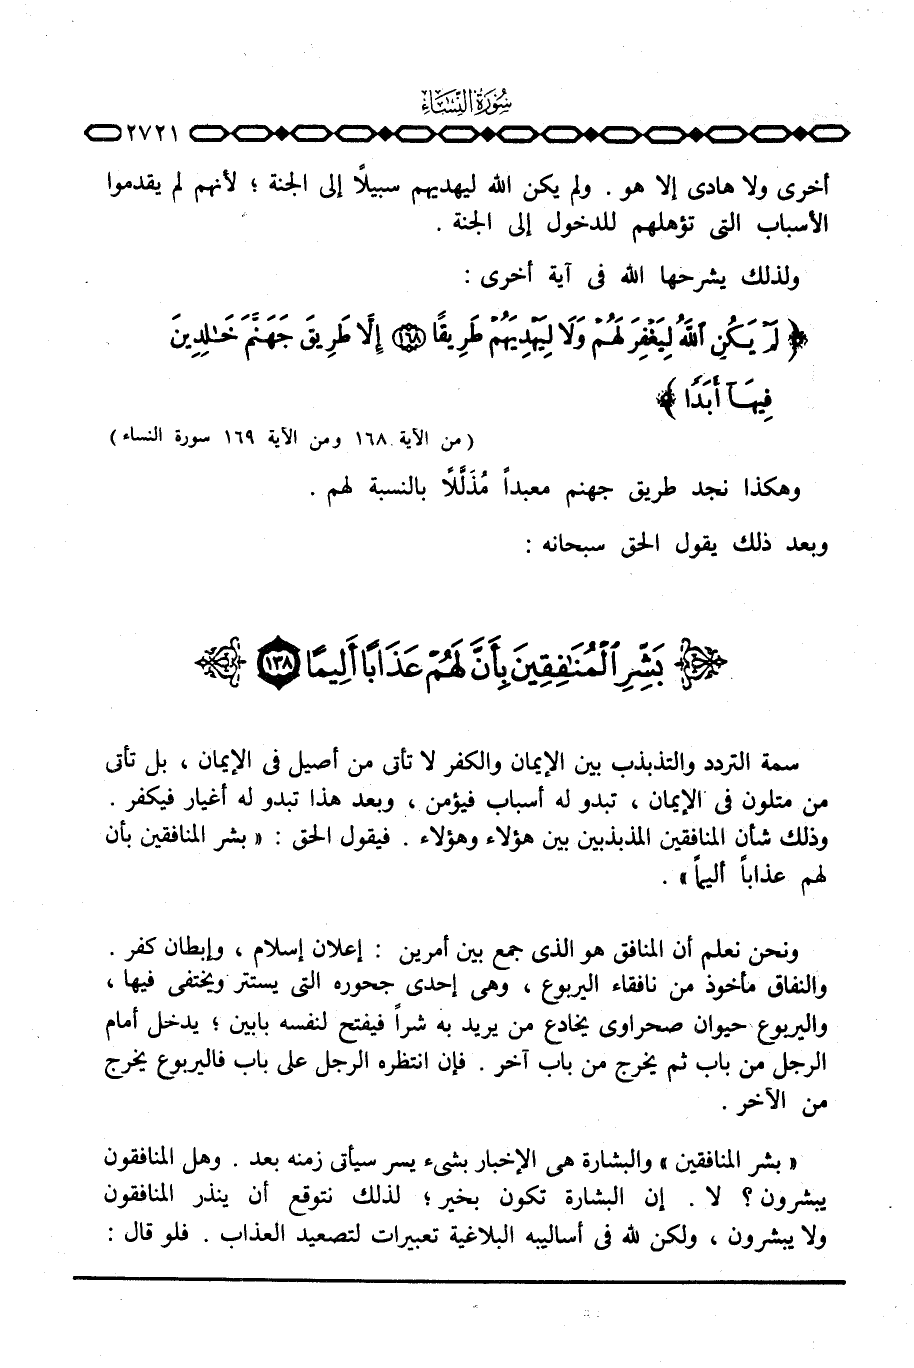 سُورَةُ النِّسَاءِ
٢٧٢١
أخرى ولا هادى إلا هو . ولم يكن الله ليهديهم سبيلاً إلى الجنة ؛ لأنهم لم يقدموا
الأسباب التى تؤهلهم للدخول إلى الجنة .
ولذلك يشرحها الله فى آية أخرى :
﴿ لَمْ يَكُنِ ٱللَّهُ لِيَغْفِرَ لَهُمْ وَلَا لِيَهْدِيَهُمْ طَرِيقًا ١٦٨ إِلَّا طَرِيقَ جَهَنَّمَ خَٰلِدِينَ
فِيهَآ أَبَدًا ﴾
( من الآية ١٦٨ ومن الآية ١٦٩ سورة النساء )
وهكذا نجد طريق جهنم معبداً مُذَلَّلًا بالنسبة لهم .
وبعد ذلك يقول الحق سبحانه :
بَشِّرِ ٱلْمُنَٰفِقِينَ بِأَنَّ لَهُمْ عَذَابًا أَلِيمًا ١٣٨
سمة التردد والتذبذب بين الإيمان والكفر لا تأتى من أصيل فى الإيمان ، بل تأتى
من متلون فى الإيمان ، تبدو له أسباب فيؤمن ، وبعد هذا تبدو له أغيار فيكفر .
وذلك شأن المنافقين المذبذبين بين هؤلاء وهؤلاء . فيقول الحق : « بشر المنافقين بأن
لهم عذاباً أليماً » .
ونحن نعلم أن المنافق هو الذى جمع بين أمرين : إعلان إسلام ، وإبطان كفر .
والنفاق مأخوذ من نافقاء اليربوع ، وهى إحدى جحوره التى يستتر ويختفى فيها ،
واليربوع حيوان صحراوى يخادع من يريد به شراً فيفتح لنفسه بابين ؛ يدخل أمام
الرجل من باب ثم يخرج من باب آخر . فإن انتظره الرجل على باب فاليربوع يخرج
من الآخر .
« بشر المنافقين » والبشارة هى الإخبار بشىء يسر سيأتى زمنه بعد . وهل المنافقون
يبشرون ؟ لا . إن البشارة تكون بخير ؛ لذلك نتوقع أن ينذر المنافقون
ولا يبشرون ، ولكن لله فى أساليبه البلاغية تعبيرات لتصعيد العذاب . فلو قال :